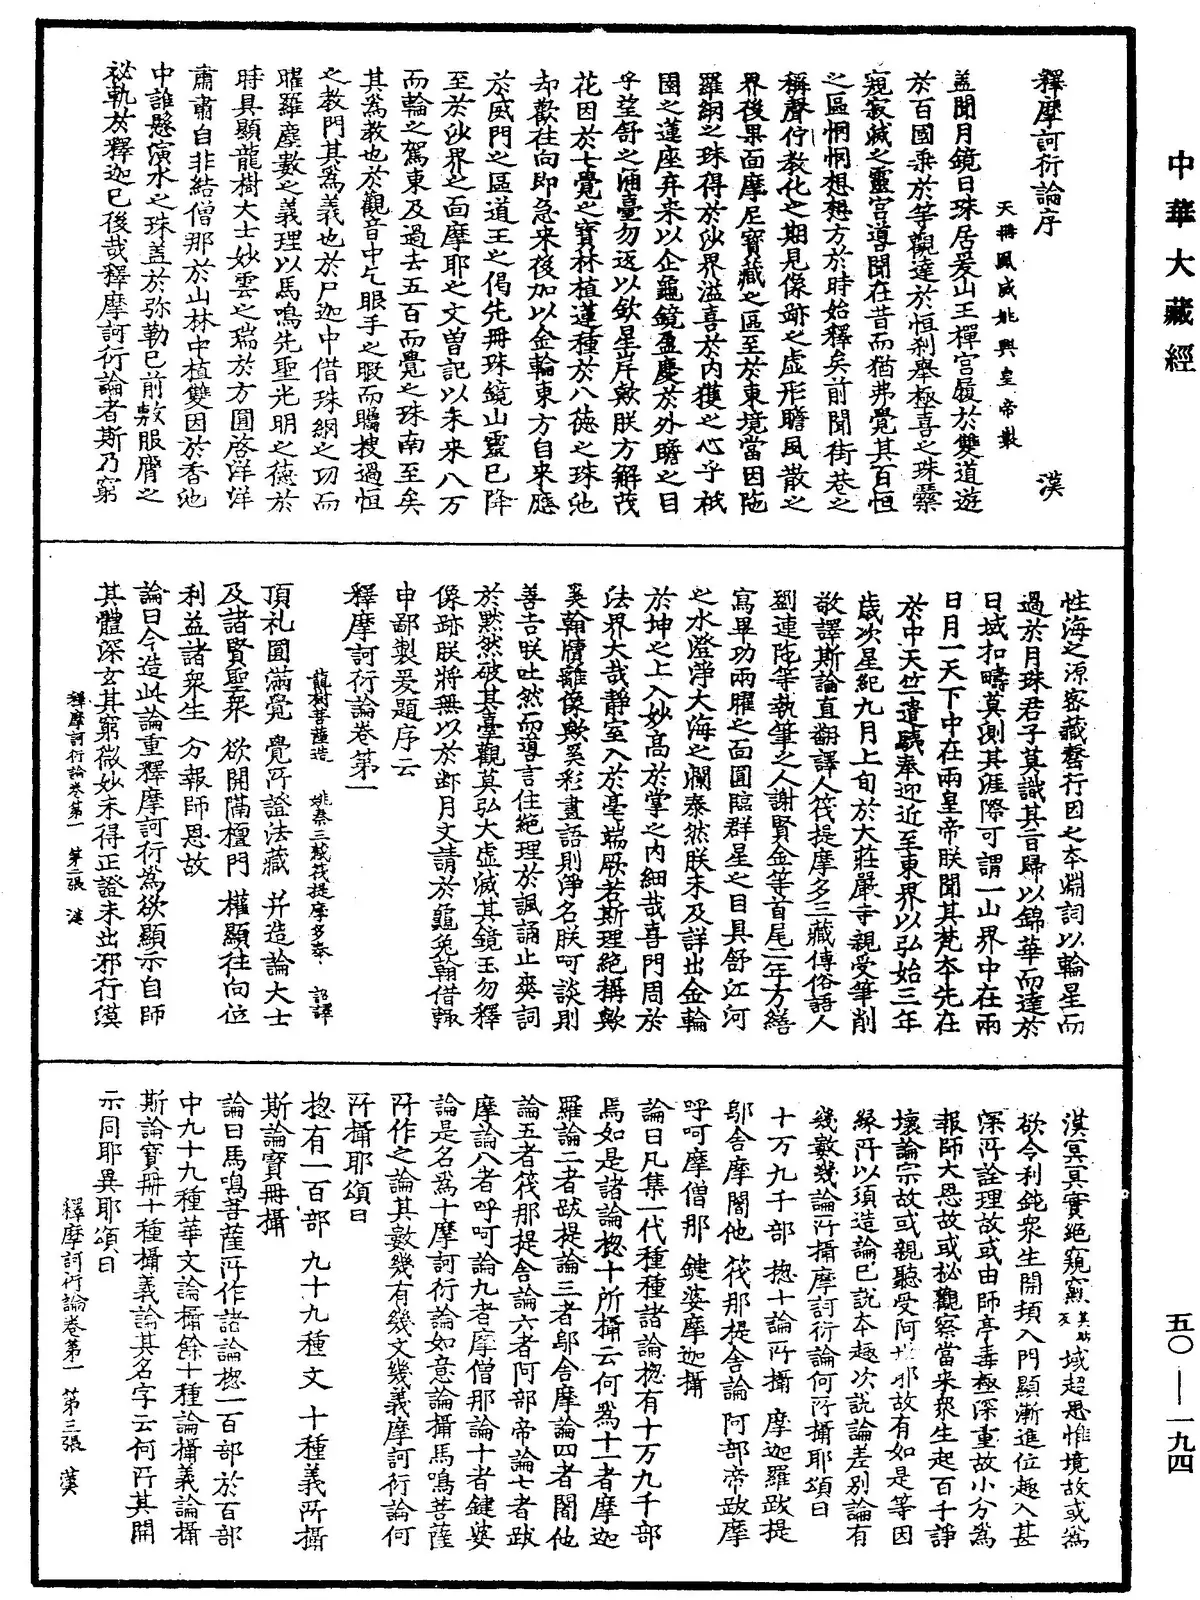 中華大藏經
釋摩訶衍論序　漢
天冊鳳威姚興皇帝製
蓋聞月鏡日珠居爰山王禪宮履於雙道遊
於百國乘於等觀達於恒刹舉極喜之珠
窺寂滅之靈宮導聞在昔而猶弗覺其百恒
之區惘惘想想方於時始釋矣前聞街巷之
稱聲佇教化之期見像跡之虛形瞻風散之
界後果面摩尼寶藏之區至於東境當因陁
羅網之珠得於沙界溢喜於內獲之心乎祇
園之蓮座弃来以企龜鏡盈慶於外瞻之目
乎望舒之涵臺勿迈以欽星岸歟朕方解茂
花因於七覺之寶林植蓮種於八德之珠池
却歡往向即急来後加以金輪東方自来應
於威門之區道王之偈先冊珠鏡山靈已降
至於沙界之面摩耶之文曽記以未来八万
而輪之駕東及過去五百而覺之珠南至矣
其爲教也於觀音中乞眼手之暇而矚搜過恒
之教門其爲義也於尸迦中借珠網之功而
曜羅塵數之義理以馬鳴先聖光明之德於
時具顯龍樹大士妙雲之瑞於方圓啓洋洋
肅肅自非結僧那於山林中植雙因於香池
中誰懸演水之珠蓋於弥勒已前敷服膺之
祕軌於釋迦已後哉釋摩訶衍論者斯乃窮
性海之源密藏罄行因之本淵詞以輪星而
過於月珠君子莫識其旨歸以錦華而達於
日域扣疇莫測其涯際可謂一山界中在兩
日月一天下中在兩皇帝朕聞其梵本先在
於中天竺遣驍奉迎近至東界以弘始三年
歲次星紀九月上旬於大莊嚴寺親受筆削
敬譯斯論直翻譯人筏提摩多三藏傳俗語人
劉連陁等執筆之人謝賢金等首尾二年方繕
寫畢功兩曜之面圓臨群星之目具舒江河
之水澄淨大海之瀾泰然朕未及詳出金輪
於坤之上入妙高於掌之內細哉喜門周於
法界大哉靜室入於毫端厥若斯理絕稱歟
奚翰牘離像歟奚彩畫語則淨名朕呵談則
善吉朕吐然而導言住絕理於諷誦止爽詞
於默然破其臺觀莫弘大虛滅其鏡玉勿釋
像跡朕將無以於断月文請於龜兔翰借輙
申鄙製爰題序云
釋摩訶衍論卷第一
龍樹菩薩造　姚秦三藏筏提摩多奉　詔譯
頂礼圓滿覺　覺所證法藏　并造論大士
及諸賢聖衆　欲開隔檀門　權顯往向位
利益諸衆生　分報師恩故
論曰今造此論重釋摩訶衍爲欲顯示自師
其體深玄其窮微妙未得正證未出邪行漠
釋摩訶衍論卷第一　第二張　漢
漠冥冥實絕窺窬域超思惟境故或爲
欲令利鈍衆生開頓入門顯漸進位趣入甚
深所詮理故或由師亭毒極深重故小分爲
報師大恩故或祕觀察當来衆生起百千諍
壞論宗故或親聽受阿世耶故有如是等因
緣所以須造論已說本趣次説論差別論有
幾數幾論所攝摩訶衍論何所攝耶頌曰
十万九千部　揔十論所攝　摩迦羅䟦提
鄔舍摩閣他　筏那提舍論　阿部帝䟦摩
呼呵摩僧那　鍵婆摩迦攝
論曰凡集一代種種諸論揔有十万九千部
焉如是諸論揔十所攝云何爲十一者摩迦
羅論二者䟦提論三者鄔舍摩論四者閣他
論五者筏那提舍論六者阿部帝論七者䟦
摩論八者呼呵論九者摩僧那論十者鍵婆
論是名爲十摩訶衍論如意論攝馬鳴菩薩
所作之論其數幾有幾文幾義摩訶衍論何
所攝耶頌曰
揔有一百部　九十九種文　十種義所攝
斯論寶冊攝
論曰馬鳴菩薩所作諸論揔一百部於百部
中九十九種華文論攝餘十種論攝義論攝
斯論寶冊十種攝義論其名字云何所其開
示同耶異耶頌曰
釋摩訶衍論卷第一　第三張　漢
五〇—一九四